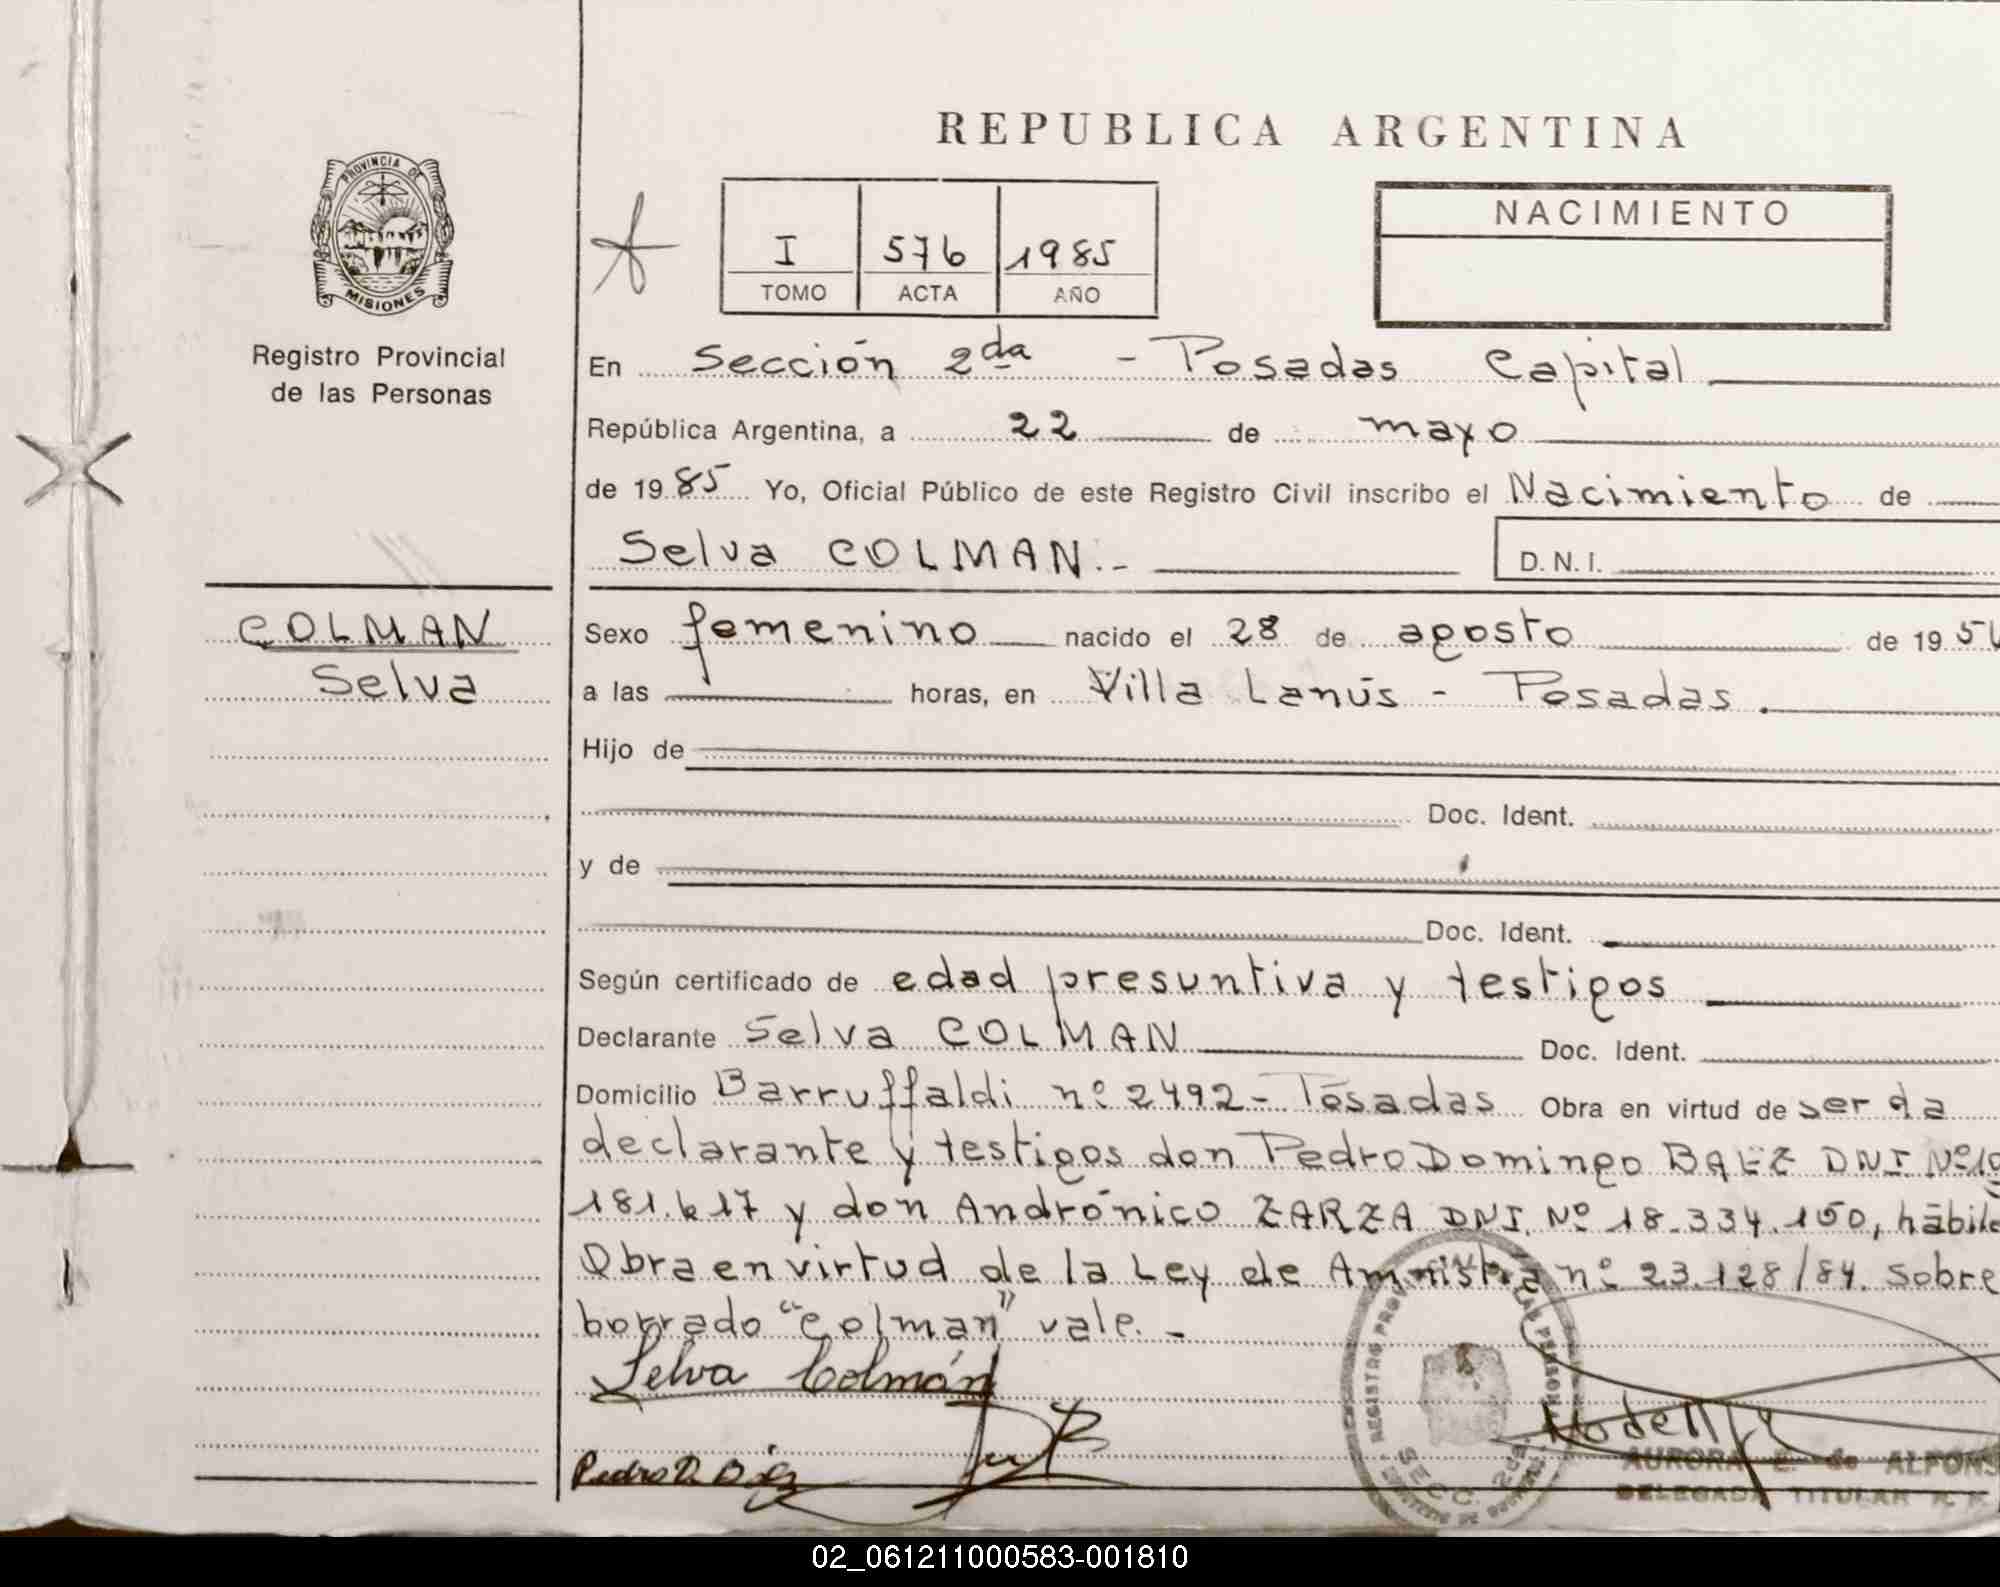 REPUBLICA ARGENTINA
PROVINCIA DE
MISIONES
Registro Provincial
de las Personas
I 576 1985
TOMO ACTA AÑO
NACIMIENTO
En Sección 2da - Posadas Capital
República Argentina, a 22 de mayo
de 1985 Yo, Oficial Público de este Registro Civil inscribo el Nacimiento de
Selva COLMAN.-
D. N. I.
COLMAN
Selva
Sexo femenino nacido el 28 de agosto de 19
a las horas, en Villa Lanús - Posadas.
Hijo de
Doc. Ident.
y de
Doc. Ident.
Según certificado de edad presuntiva y testigos
Declarante Selva COLMAN Doc. Ident.
Domicilio Barruffaldi nº 2492 - Posadas Obra en virtud de ser da
declarante y testigos don Pedro Domingo BAEZ DNI Nº 10
181.617 y don Andrónico ZARZA DNI. Nº 18.334.150, hábile
Obra en virtud de la Ley de Amnistia nº 23.128/84. Sobre
borrado "Colman" vale. -
Selva Colmán
Pedro D. Báez
REGISTRO
SECC. 2da.
AURORA E. de ALFONS
DELEGADA TITULAR
02_061211000583-001810